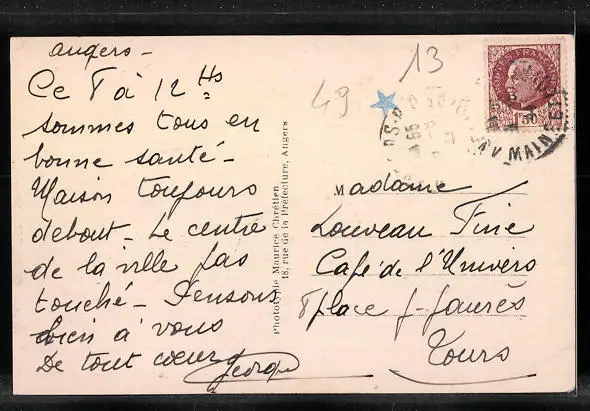 Angers -
Ce 8 à 12 Hs
sommes tous en
bonne santé -
Maison toujours
debout - Le centre
de la ville pas
touché - Pensons
bien à vous
De tout coeur
George
Phototypie Maurice Chrétien
18, rue de la Préfecture, Angers
49
13
POSTES FRANÇAISES
1F50
Madame
Louveau Fine
Café de l'Univers
8 place J-Jaurès
Tours